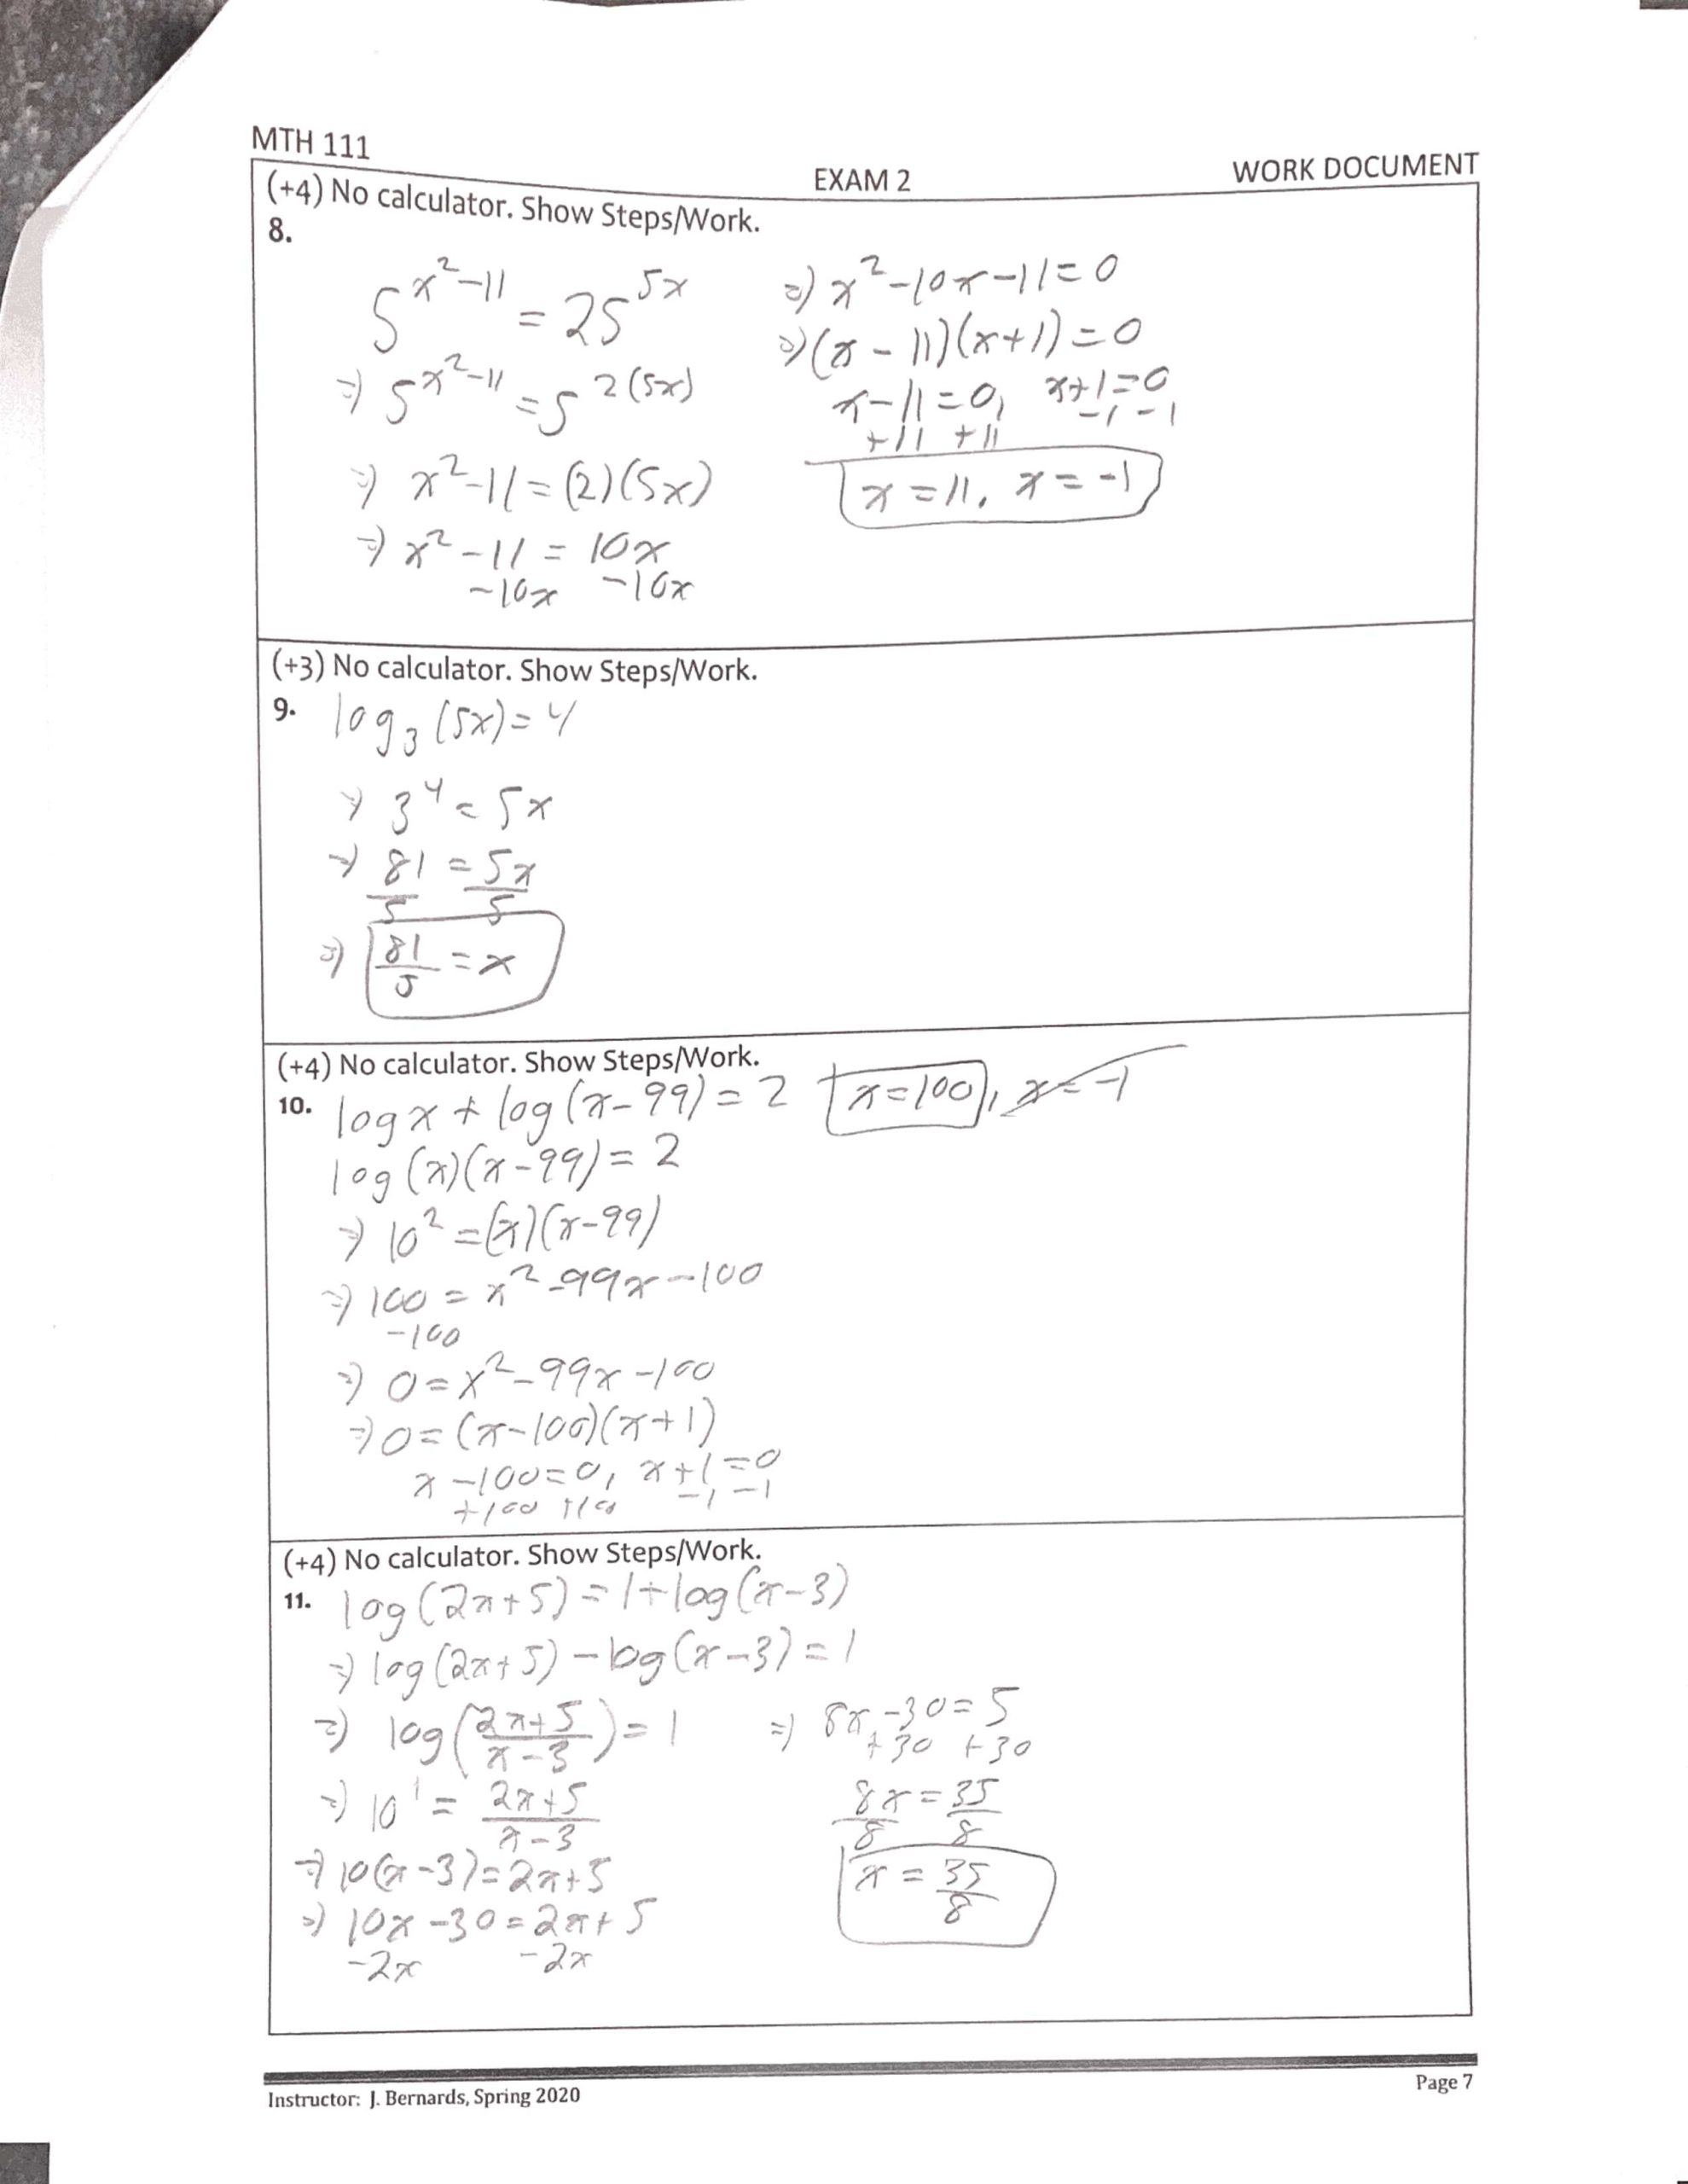 MTH 111
EXAM 2
WORK DOCUMENT
(+4) No calculator. Show Steps/Work.
8.
5^{x^2-11} = 25^{5x}
⇒ 5^{x^2-11} = 5^{2(5x)}
⇒ x^2-11 = (2)(5x)
⇒ x^2-11 = 10x
-10x -10x
⇒ x^2-10x-11=0
⇒ (x-11)(x+1)=0
x-11=0, x+1=0
+11 +11 -1 -1
x=11, x=-1
(+3) No calculator. Show Steps/Work.
9. log_3(5x)=4
⇒ 3^4 = 5x
⇒ 81/5 = 5x/5
⇒ 81/5 = x
(+4) No calculator. Show Steps/Work.
10. log x + log(x-99) = 2 x=100, x=-1
log(x)(x-99) = 2
⇒ 10^2 = (x)(x-99)
⇒ 100 = x^2-99x-100
-100
⇒ 0 = x^2-99x-100
⇒ 0 = (x-100)(x+1)
x-100=0, x+1=0
+100 +100 -1 -1
(+4) No calculator. Show Steps/Work.
11. log(2x+5) = 1+log(x-3)
⇒ log(2x+5) - log(x-3) = 1
⇒ log((2x+5)/(x-3)) = 1
⇒ 10^1 = (2x+5)/(x-3)
⇒ 10(x-3) = 2x+5
⇒ 10x-30 = 2x+5
-2x -2x
⇒ 8x-30 = 5
+30 +30
8x/8 = 35/8
x = 35/8
Instructor: J. Bernards, Spring 2020
Page 7